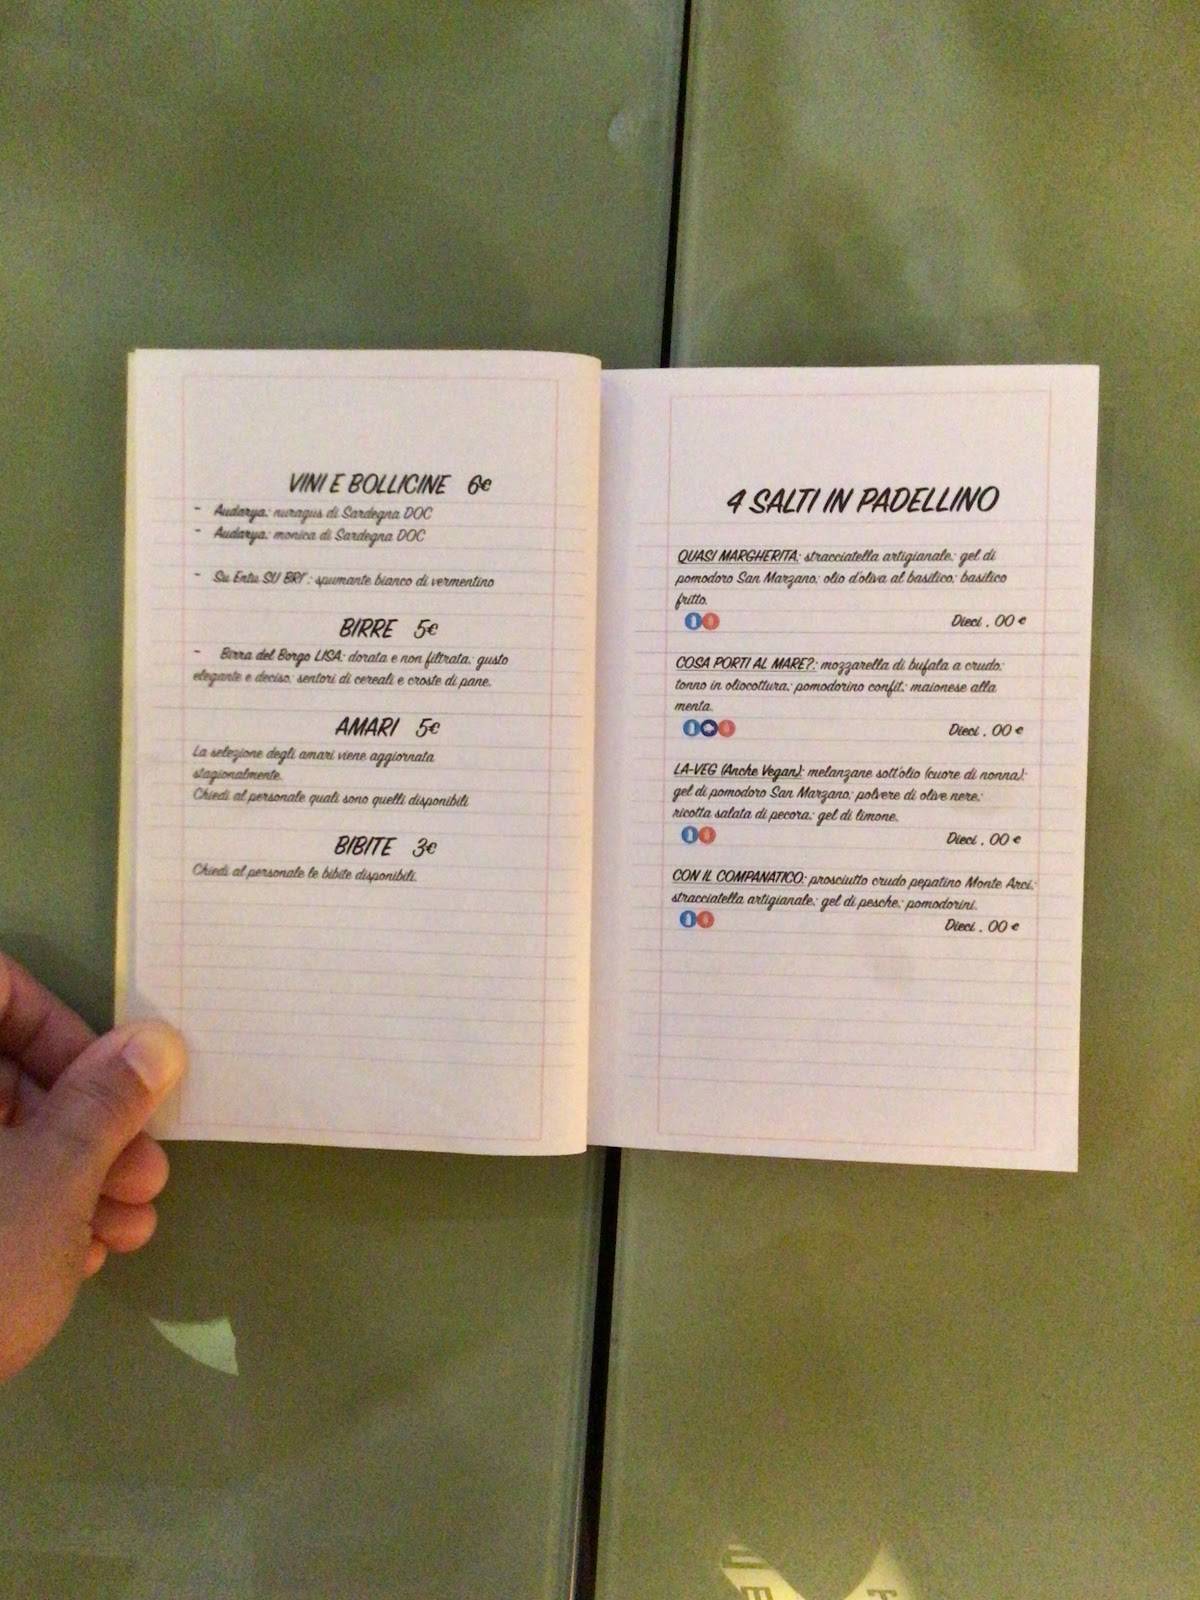 VINI E BOLLICINE 6€
- Audarya: nuragus di Sardegna DOC
- Audarya: monica di Sardegna DOC
- Su Entu SU BRT : spumante bianco di vermentino
BIRRE 5€
- Birra del Borgo LISA: dorata e non filtrata; gusto
elegante e deciso; sentori di cereali e croste di pane.
AMARI 5€
La selezione degli amari viene aggiornata
stagionalmente.
Chiedi al personale quali sono quelli disponibili
BIBITE 3€
Chiedi al personale le bibite disponibili.
4 SALTI IN PADELLINO
QUASI MARGHERITA: stracciatella artigianale; gel di
pomodoro San Marzano; olio d'oliva al basilico; basilico
fritto.
Dieci . 00 €
COSA PORTI AL MARE?: mozzarella di bufala a crudo;
tonno in oliocottura; pomodorino confit; maionese alla
menta.
Dieci . 00 €
LA-VEG (Anche Vegan): melanzane sott'olio (cuore di nonna);
gel di pomodoro San Marzano; polvere di olive nere;
ricotta salata di pecora; gel di limone.
Dieci . 00 €
CON IL COMPANATICO: prosciutto crudo pepatino Monte Arci;
stracciatella artigianale; gel di pesche; pomodorini.
Dieci . 00 €